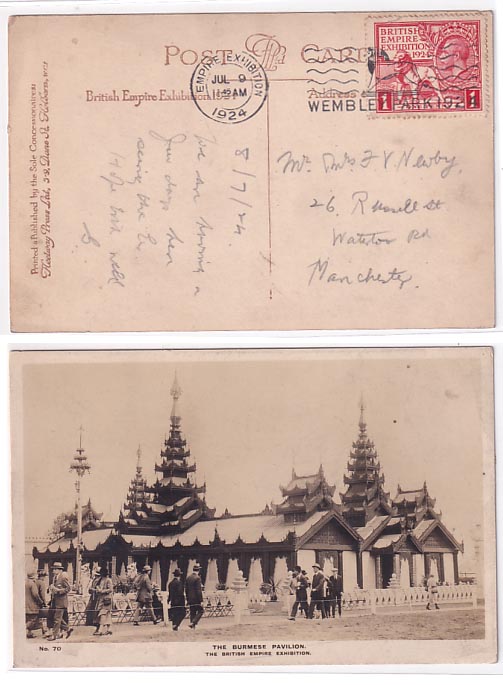 POST CARD
British Empire Exhibition
Address
EMPIRE EXHIBITION
JUL 9
1924
WEMBLEY PARK 1924
BRITISH
EMPIRE
EXHIBITION
1924
1
Printed & Published by the Sole Concessionaires:
Fleetway Press Ltd., 3-9, Dane St. Holborn, W.C.1
8/7/24.
We are having a
few days here
seeing the Ex
Hope both well
G.
Mr & Mrs F V. Newby
26. Russell St
Waterloo Rd
Manchester
No. 70
THE BURMESE PAVILION.
THE BRITISH EMPIRE EXHIBITION.